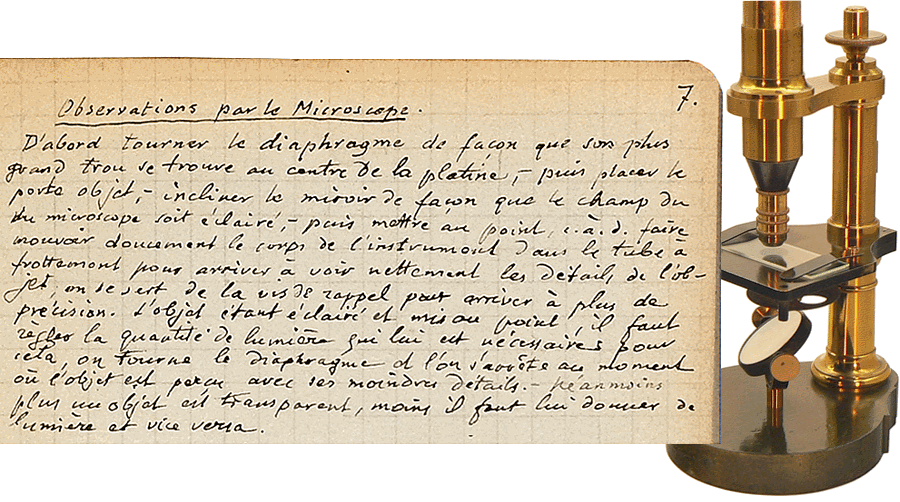 7.
Observations par le Microscope.
D'abord tourner le diaphragme de façon que son plus
grand trou se trouve au centre de la platine, – puis placer le
porte objet, – incliner le miroir de façon que le champ du
du microscope soit éclairé, – puis mettre au point, c.à.d. faire
mouvoir doucement le corps de l'instrument dans le tube à
frottement pour arriver à voir nettement les détails de l'ob-
jet, on se sert de la vis de rappel pour arriver à plus de
précision. L'objet étant éclairé et mis au point, il faut
règler la quantité de lumière qui lui est nécessaire, pour
cela, on tourne le diaphragme et l'on s'arrête au moment
où l'objet est perçu avec ses moindres détails. – Néanmoins
plus un objet est transparent, moins il faut lui donner de
lumière et vice versa.